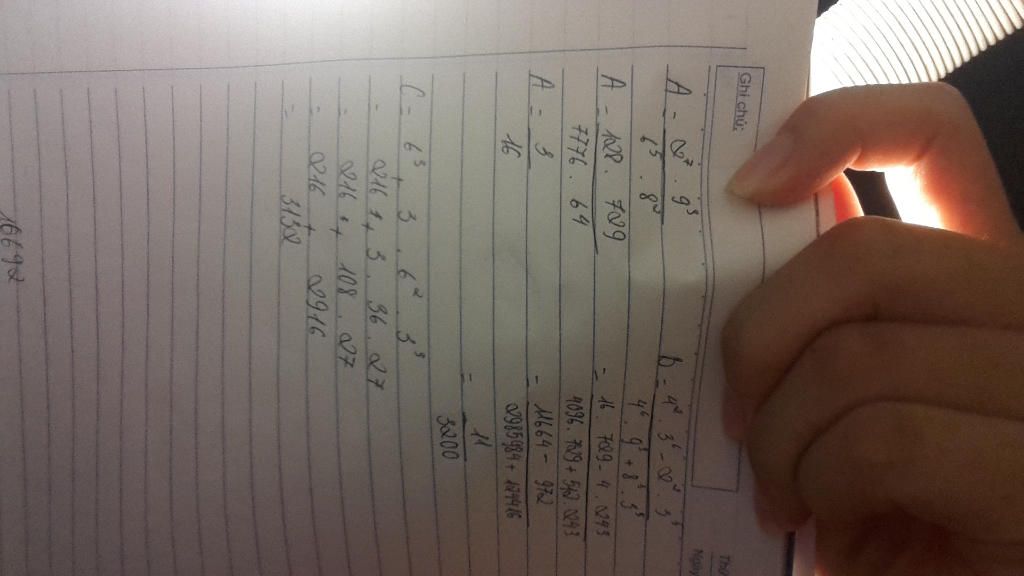 Ghi chú:
A = 2⁷ . 9³ / 6⁵ . 8²
A = 128 . 729 / 7776 . 64
A = 3 / 16
B = 4² . 3⁶ - 2² . 3⁵ / 4⁶ . 9³ + 8³ . 3⁵
= 16 . 729 - 4 . 243 / 4096 729 + 512 243
= 11664 - 972 / 2985984 + 124416
= 11 / 3200
C = 6³ + 3 . 6² . 3³
= 216 + 3 . 36 . 27
= 216 + 108 . 27
= 216 + 2916
= 3132